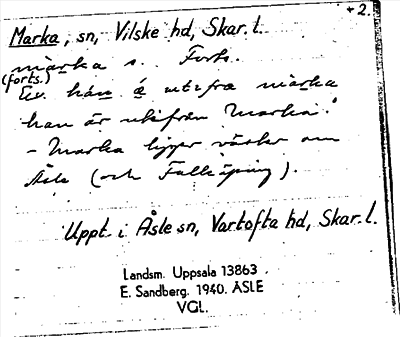 + 2.
Marka, sn, Vilske hd, Skar. l.
marka s. Forts.
(forts.)
Ev. hán á uti frå marka
han är utifrån Marka."
- Marka ligger väster om
Åsle (och Falköping).
Uppt. i Åsle sn, Vartofta hd, Skar. l.
Landsm. Uppsala 13863
E. Sandberg. 1940. ÅSLE
VGL.